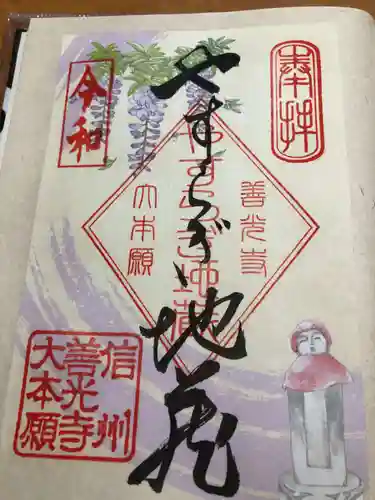 奉拝
やすらぎ地蔵
令和
善光寺
やすらぎ地蔵
大本願
信州
善光寺
大本願